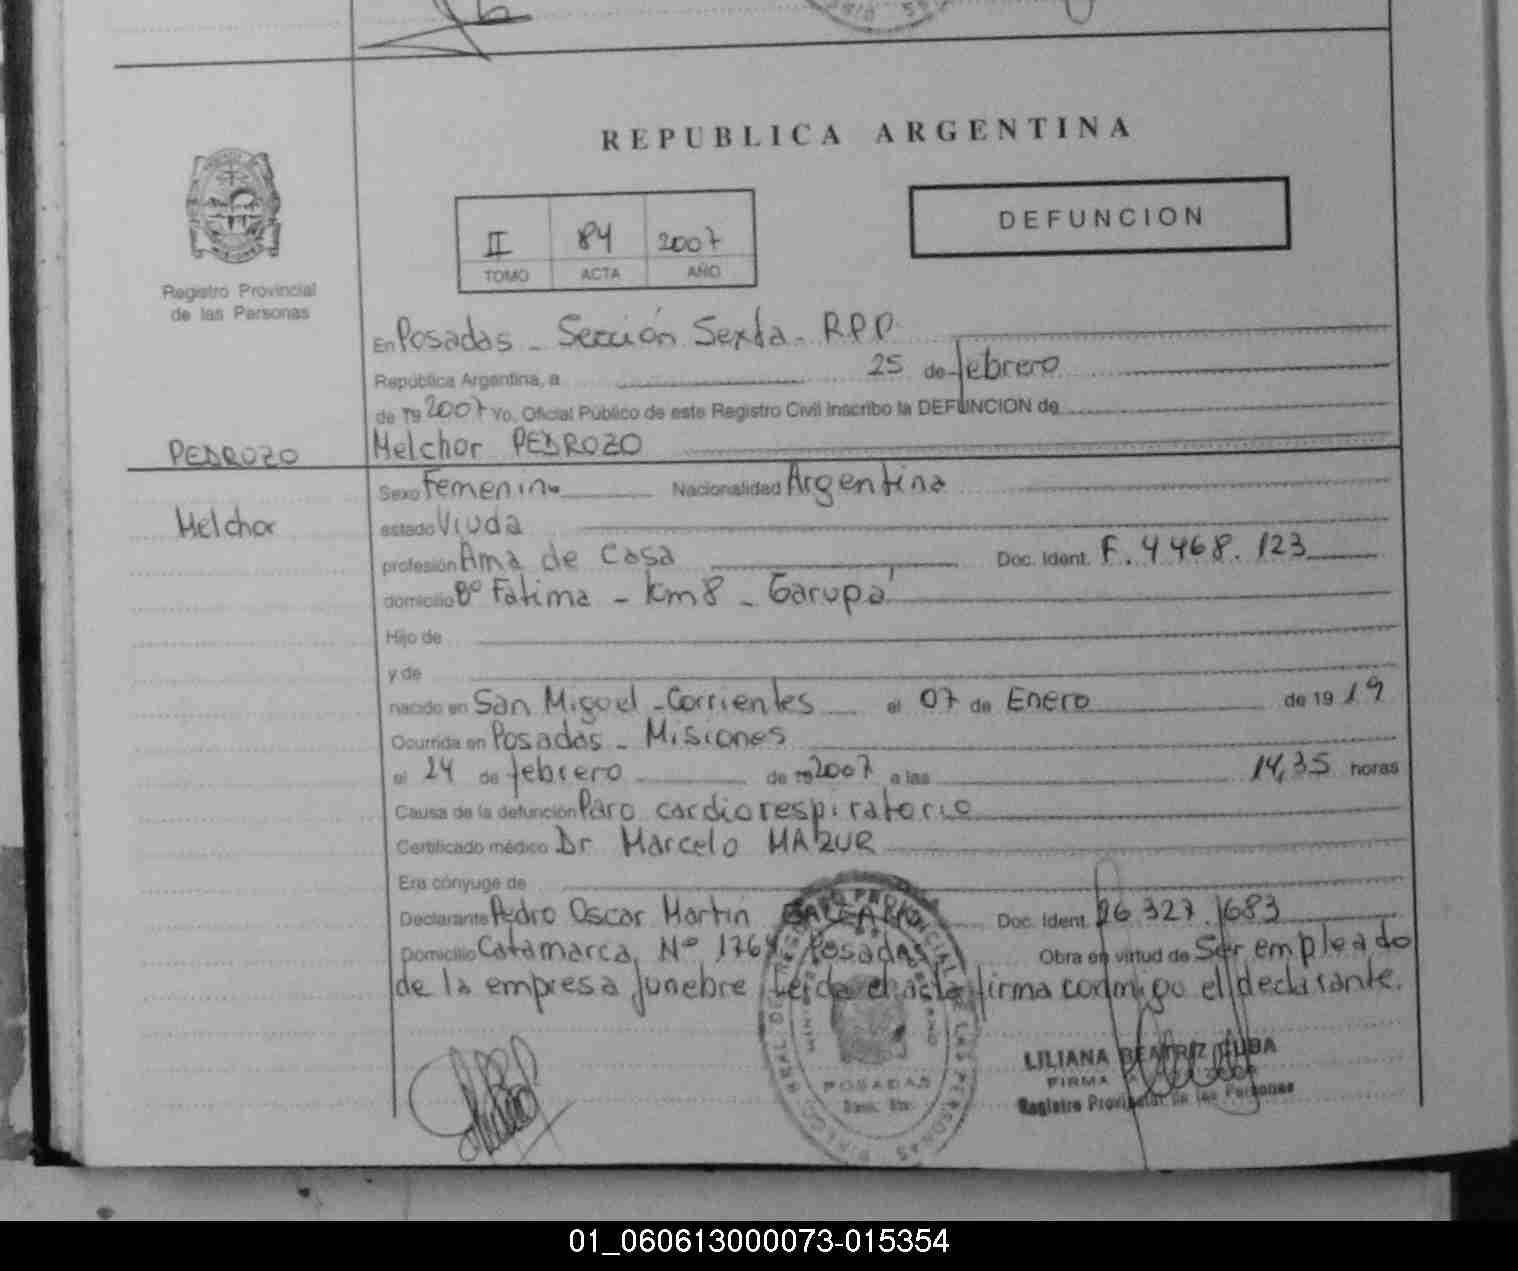 REPUBLICA ARGENTINA
DEFUNCION
II 84 2007
TOMO ACTA AÑO
Registro Provincial
de las Personas
En Posadas - Sección Sexta - RPP
República Argentina, a 25 de febrero
de 19 2007 Yo, Oficial Público de este Registro Civil inscribo la DEFUNCION de
PEDROZO
Melchor PEDROZO
Sexo Femenino Nacionalidad Argentina
Melchor
estado Viuda
profesión Ama de Casa Doc. Ident. F. 4468.123
domicilio Bº Fátima - km8 - Garupá
Hijo de
y de
nacido en San Miguel - Corrientes el 07 de Enero de 19 19
Ocurrida en Posadas - Misiones
el 24 de febrero de 19 2007 a las 14,35 horas
Causa de la defunción Paro cardiorespiratorio
Certificado médico Dr. Marcelo MAZUR
Era cónyuge de
Declarante Pedro Oscar Martín Doc. Ident. 26.327.683
Domicilio Catamarca Nº Posadas Obra en virtud de Ser empleado
de la empresa funebre leída el acta firma conmigo el declarante.
LILIANA BEATRIZ
FIRMA
Registro Provincial de las Personas
POSADAS
01_060613000073-015354